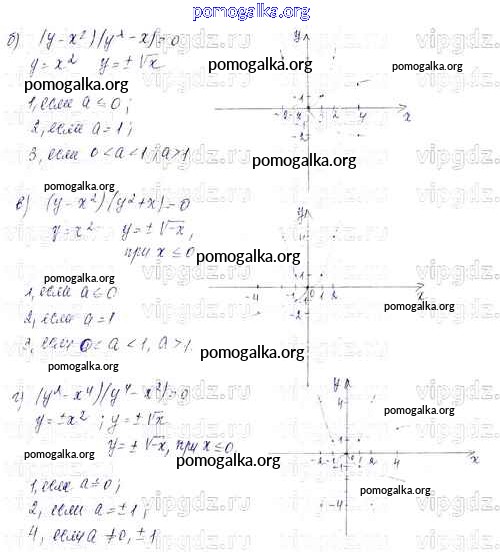 pomogalka.org
б) (y - x²)(y² - x) = 0
y = x² y = ± √x
pomogalka.org
pomogalka.org
1, если a ≤ 0;
2, если a = 1;
3, если 0 < a < 1, a > 1
pomogalka.org
pomogalka.org
в) (y - x²)(y² + x) = 0
y = x² y = ± √-x,
при x ≤ 0
pomogalka.org
pomogalka.org
1, если a ≤ 0
2, если a = 1
3, если 0 < a < 1, a > 1
pomogalka.org
pomogalka.org
pomogalka.org
г) (y² - x⁴)(y⁴ - x²) = 0
y = ± x²; y = ± √x
y = ± √-x, при x ≤ 0
pomogalka.org
pomogalka.org
1, если a = 0;
2, если a = ± 1;
4, если a ≠ 0, ± 1
pomogalka.org
pomogalka.org